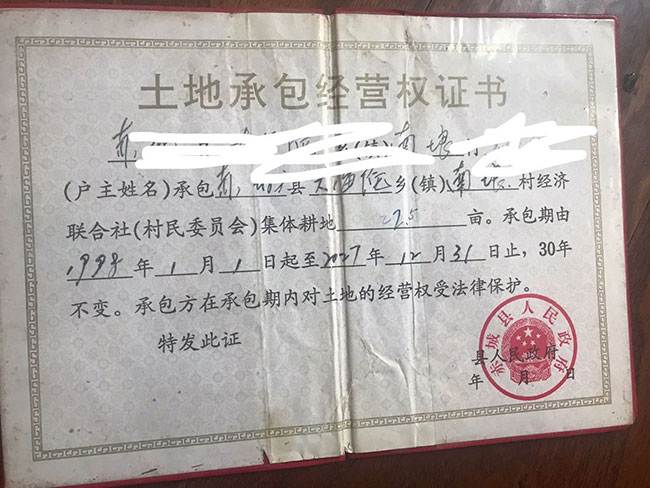 土地承包经营权证书
乡(镇)南壕
(户主姓名)承包赤城县大海陀乡(镇)南壕村经济
联合社(村民委员会)集体耕地27.5亩。承包期由
1998年1月1日起至2027年12月31日止,30年
不变。承包方在承包期内对土地的经营权受法律保护。
特发此证
赤城县人民政府
县人民政府
年 月 日